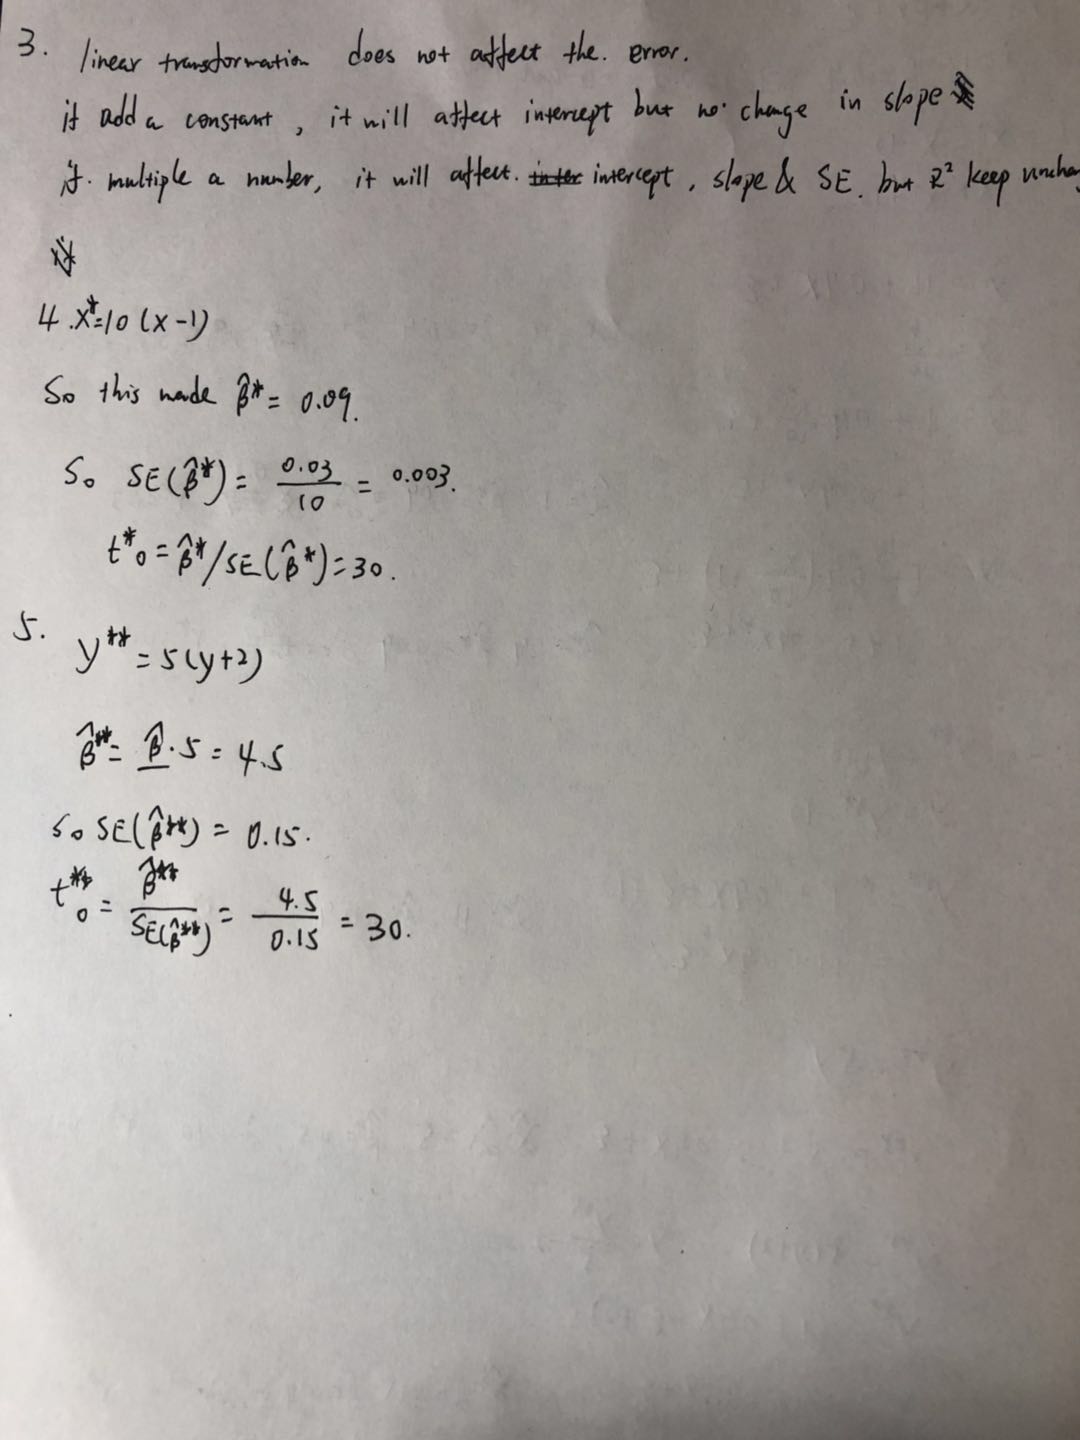 3. linear transformation does not affect the. error.
if add a constant, it will affect intercept but no change in slope
if. multiple a number, it will affect. intercept, slope & SE. but R² keep unchang
4. X*=10(x-1)
So this made β̂*= 0.09.
So SE(β̂*) = 0.03/10 = 0.003.
t*₀ = β̂*/SE(β̂*)=30.
5.
y** = 5(y+2)
β̂**= β̂·5 = 4.5
so SE(β̂**) = 0.15.
t**₀ = β̂**/SE(β̂**) = 4.5/0.15 = 30.